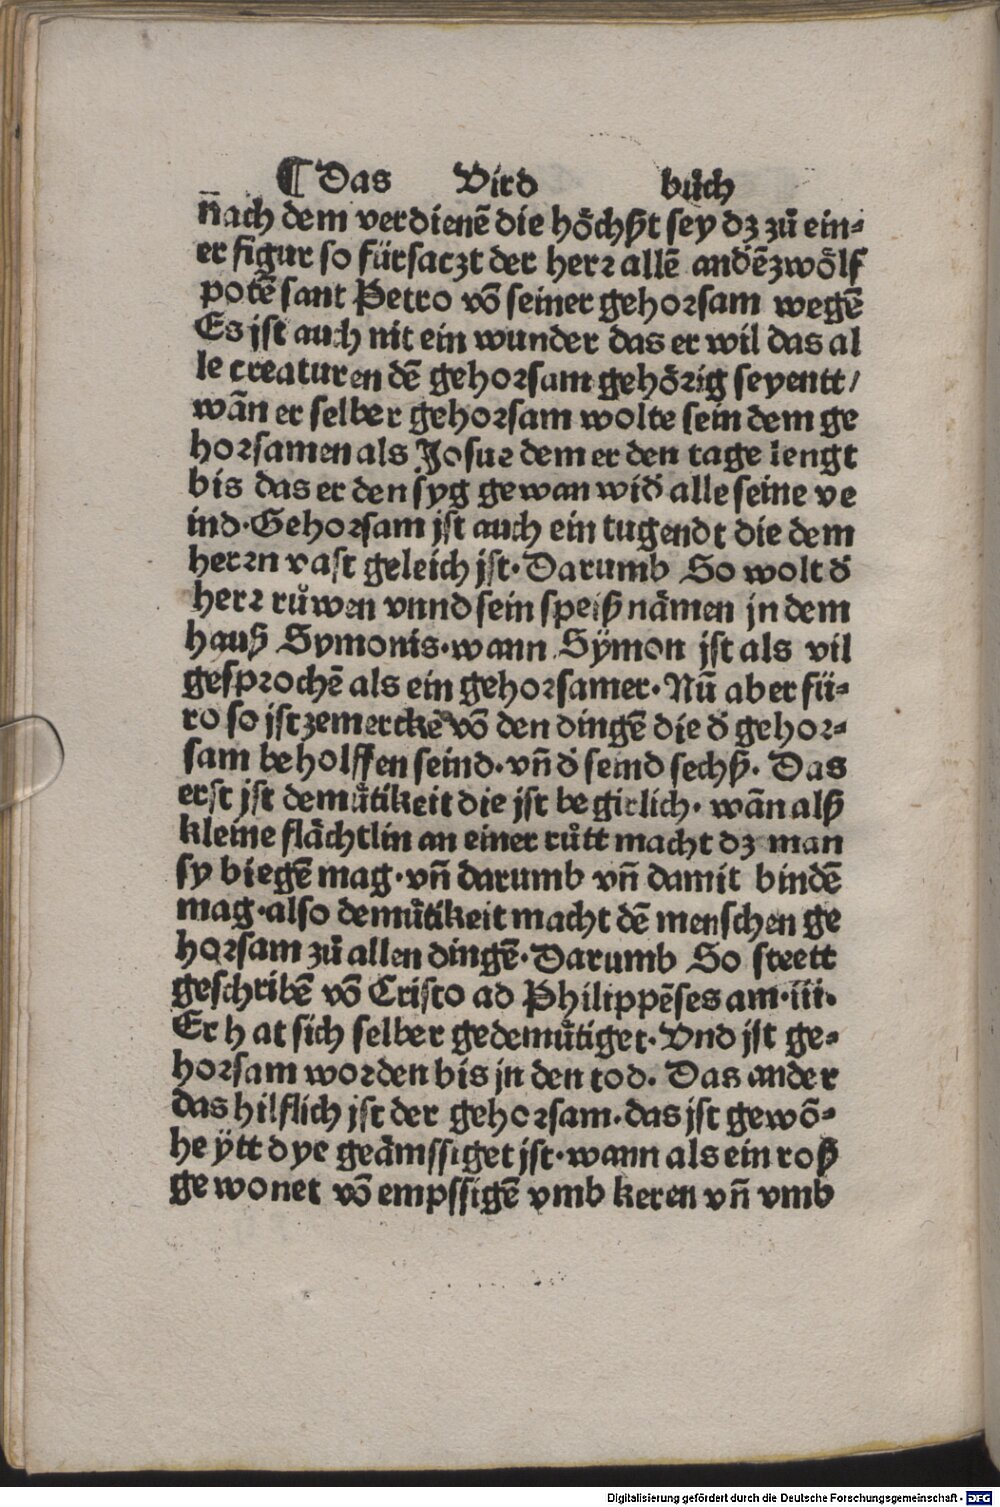 ¶ Das Vird bůch
n̄ach dem verdienē die hoͤchst sey dz zů ein-
er figur so fürsaczt der herr allē andēzwoͤlf
potē sant Petro vō seiner gehorsam wegē
Es jst auch nit ein wunder das er wil das al
le creaturen dē gehorsam gehoͤrig seyentt /
wān er selber gehorsam wolte sein dem ge
horsamen als Josue dem er den tage lengt
bis das er den syg gewan wid̕ alle seine ve
ind · Gehorsam jst auch ein tugendt die dem
herrn vast geleich jst · Darumb So wolt d̕
herr růwen vnnd sein speiß naͤmen jn dem
hauß Symonis · wann Sÿmon jst als vil
gesprochē als ein gehorsamer · Nū aber fü-
ro so jst zemerckē vō den dingē die d̕ gehor-
sam beholffen seind · vn̄ d̕ seind sechß · Das
erst jst demuͤtikeit die jst begirlich · wān alß
kleine flaͤchtlin an einer růtt macht dz man
sy biegē mag · vn̄ darumb vn̄ damit bindē
mag · also demuͤtikeit macht dē menschen ge
horsam zů allen dingē · Darumb So steett
geschribē vō Cristo ad Philippēses am · iii ·
Er hat sich selber gedemuͤtiget · Vnd jst ge-
horsam worden bis jn den tod . Das ander
das hilflich jst der gehorsam · das jst gewō-
heÿtt dye geaͤmssiget jst · wann als ein roß
gewonet vō empssigē vmb keren vn̄ vmb
Digitalisierung gefördert durch die Deutsche Forschungsgemeinschaft - DFG